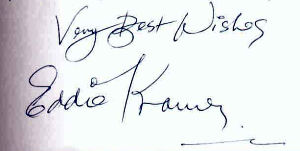 Very Best Wishes
Eddie Kramer